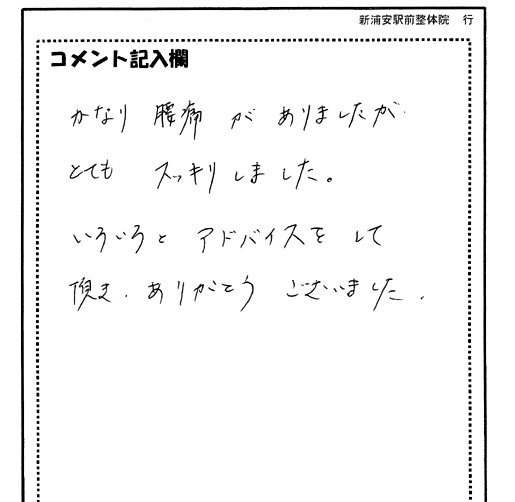 新浦安駅前整体院　行
コメント記入欄
かなり 腰痛 が ありましたが
とても スッキリ しました。
いろいろと アドバイスを して
頂き、ありがとう ございました。